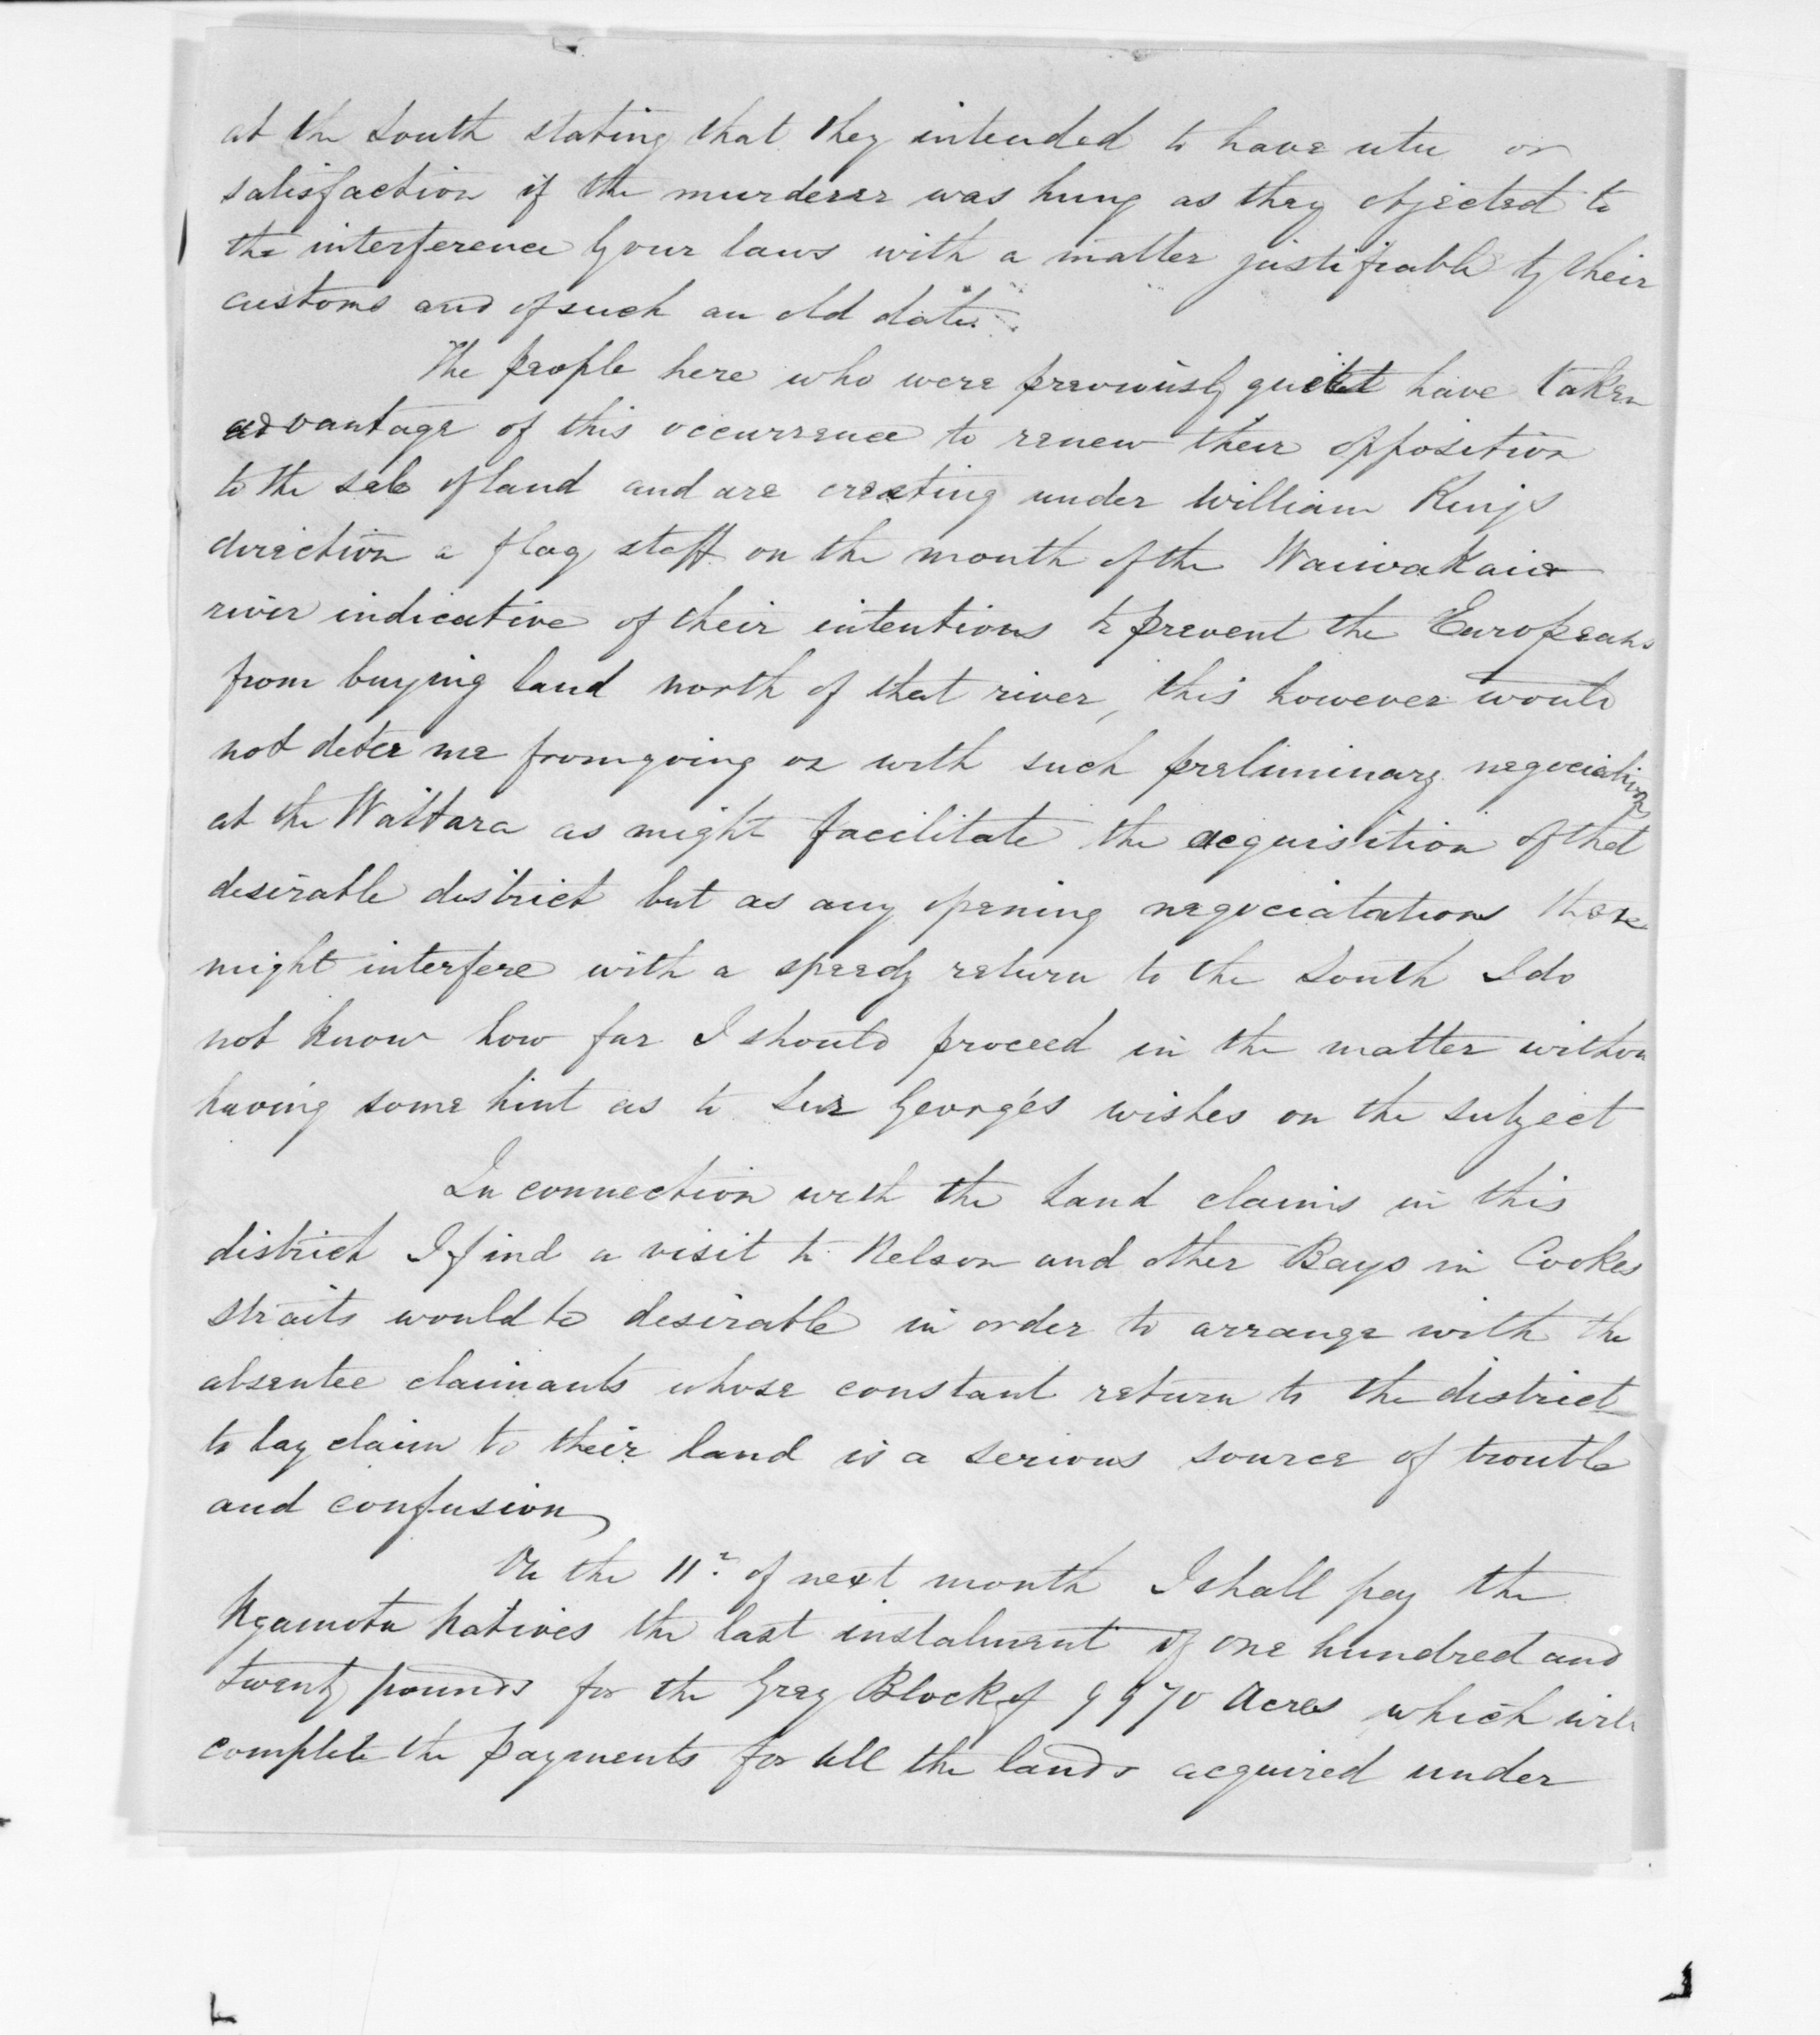 at the South stating that they intended to have utu or
satisfaction if the murderer was hung as they objected to
the interference of our laws with a matter justifiable by their
customs and of such an old date.
The people here who were previously quiet have taken
advantage of this occurrence to renew their opposition
to the sale of land and are erecting under William Kings
direction a flag staff on the mouth of the Waiwakaio
river indicative of their intentions to prevent the Europeans
from buying land north of that river, this however would
not deter me from going on with such preliminary negociations
at the Waitara as might facilitate the acquisition of that
desirable district but as any opening negociatations there
might interfere with a speedy return to the South I do
not know how far I should proceed in the matter withou
having some hint as to Sir George's wishes on the subject
In connection with the Land claims in this
district I find a visit to Nelson and other Bays in Cookes
straits would be desirable in order to arrange with the
absentee claimants whose constant return to the district
to lay claim to their land is a serious source of trouble
and confusion
On the 11th of next month I shall pay the
Ngamotu Natives the last instalment of one hundred and
twenty pounds for the Grey Block of 9970 Acres which will
complete the payments for all the lands acquired under